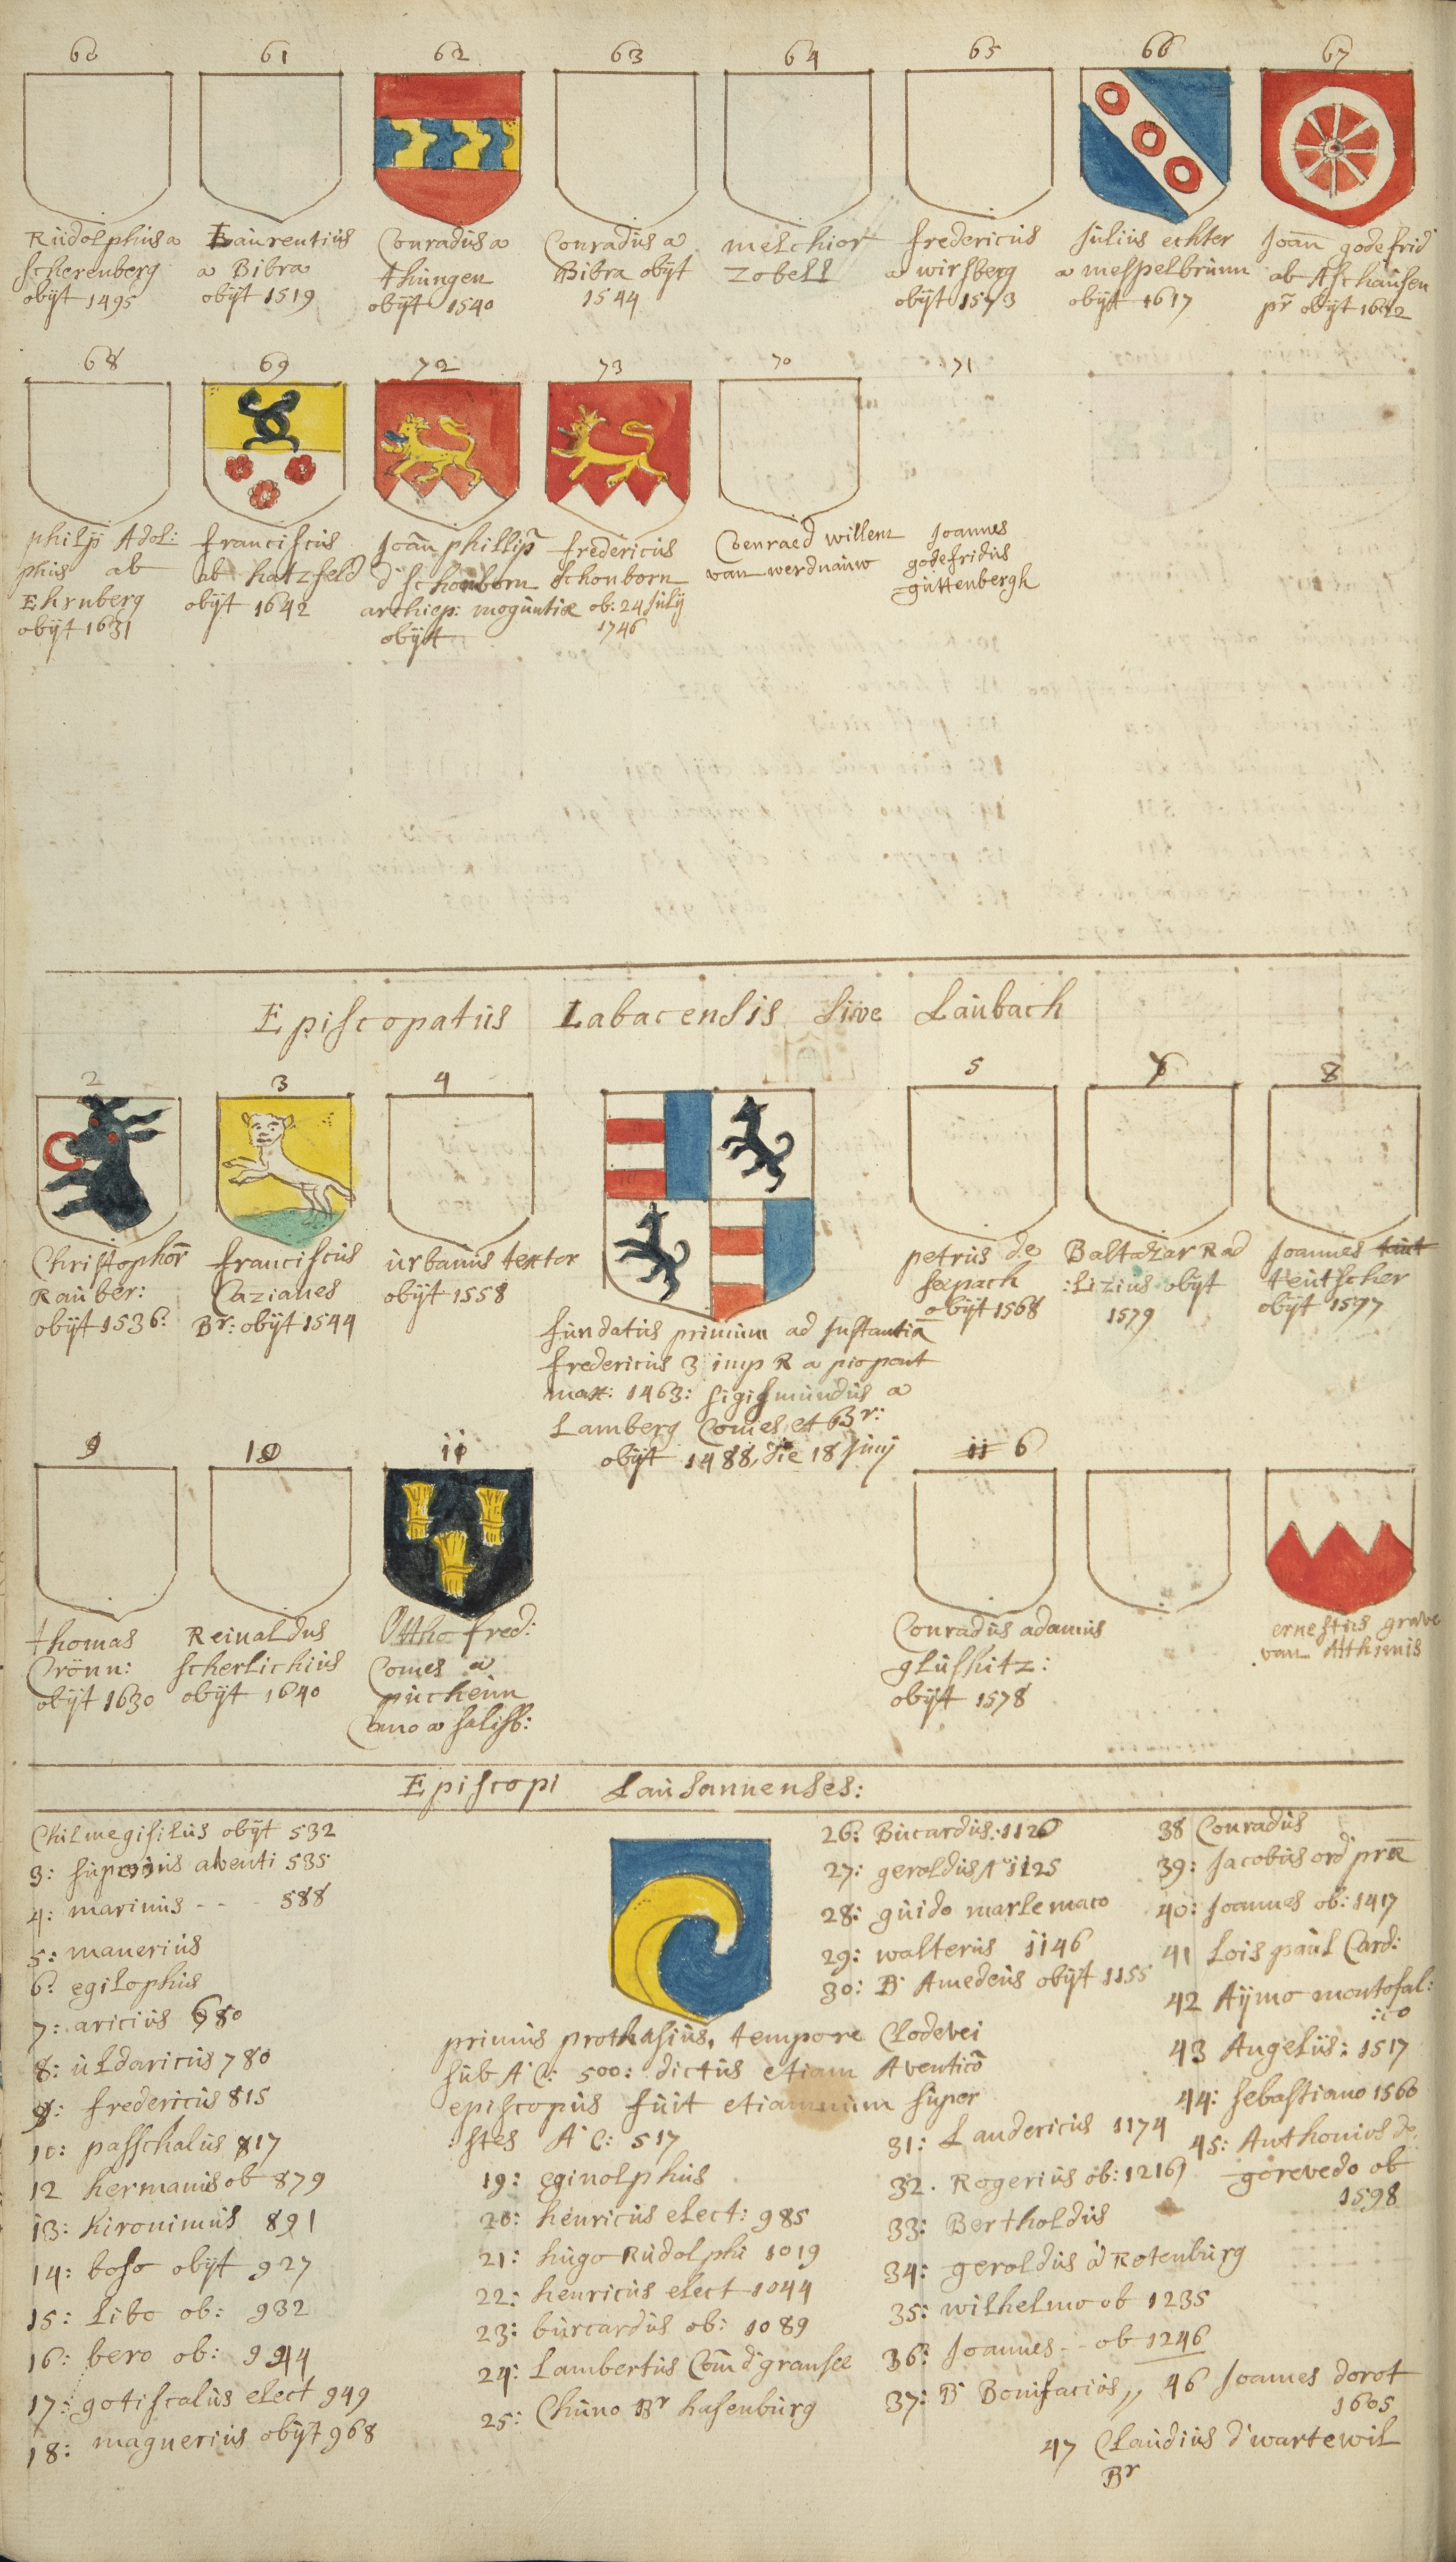 60
Rudolphus a
scherenberg
obijt 1495
61
Laurentius
a Bibra
obijt 1519
62
Conradus a
thungen
obijt 1540
63
Conradus a
Bibra obijt
1544
64
melchior
zobell
65
fredericus
a wirsberg
obijt 1573
66
Julius echter
a mespelbrunn
obijt 1617
67
Joan godefrid
ab Aschausen
pr obijt 1622
68
philip Adol:
phus ab
Ehrnberg
obijt 1631
69
franciscus
ab hatzfeld
obijt 1642
72
Joan phillip
d' schonborn
archiep: moguntiæ
obijt
73
fredericus
schonborn
ob: 24 Julij
1746
70
Coenraed willem
van werdnauw
71
Joannes
godefridus
guttenbergh
Episcopatus Labacensis sive Laubach
2
Christophor
Rauber:
obijt 1536:
3
franciscus
Cazianes
Br: obijt 1544
4
urbanus textor
obijt 1558
fundatus primum ad instantia
fredericus 3 imp R a pio pont
max: 1463: sigismundus a
Lamberg Comes et Br:
obijt 1488, die 18 Junij
5
petrus de
seepach
obijt 1568
7
Baltazar Rad
:Lizius obijt
1579
8
Joannes taut
teutscher
obijt 1597
9
thomas
Crönn:
obijt 1630
10
Reinaldus
scherlichius
obijt 1640
11
Otho fred:
Comes a
pucheim
Cano a salisb:
11 6
Conradus adamus
glushitz:
obijt 1578
ernestus grave
van Atthimis
Episcopi Lausannenses:
Chilmegisilus obijt 532
3: superius aventi 535
4: marinus - - - 588
5: manerius
6: egilophus
7: aricius 680
8: uldaricus 780
9: fredericus 815
10: passchalus 817
12 hermanus ob 879
13: hironimus 891
14: boso obijt 927
15: Libo ob: 932
16: bero ob: 944
17: gotiscalus elect 949
18: magnerius obijt 968
primus prothasius, tempore Clodevei
sub A C: 500: dictus etiam Aventico
episcopus fuit etiamnum super
:stes A C: 517
19: eginolphus
20: henricus elect: 985
21: hugo Rudolphi 1019
22: henricus elect 1044
23: burcardus ob: 1089
24: Lambertus Com d' gransee
25: Chuno Br hasenburg
26: Bucardus: 1120
27: geroldus Aº 1125
28: guido marlemaco
29: walterus 1146
30: B Amedeus obijt 1155
31: Landericus 1174
32. Rogerius ob: 1216
33: Bertholdus
34: geroldus a Rotenburg
35: wilhelmo ob 1235
36: Joannes - - ob 1246
37: B Bonifacius,,
38 Conradus
39: Jacobus ord præ
40: Joannes ob: 1417
41 Lois paul Card:
42 Aijmo montofal:
:co
43 Angelus: 1517
44: sebastiano 1560
45: Anthonius de
gorevedo ob
1598
46 Joannes dorot
1605
47 Claudius d'wartewil
Br